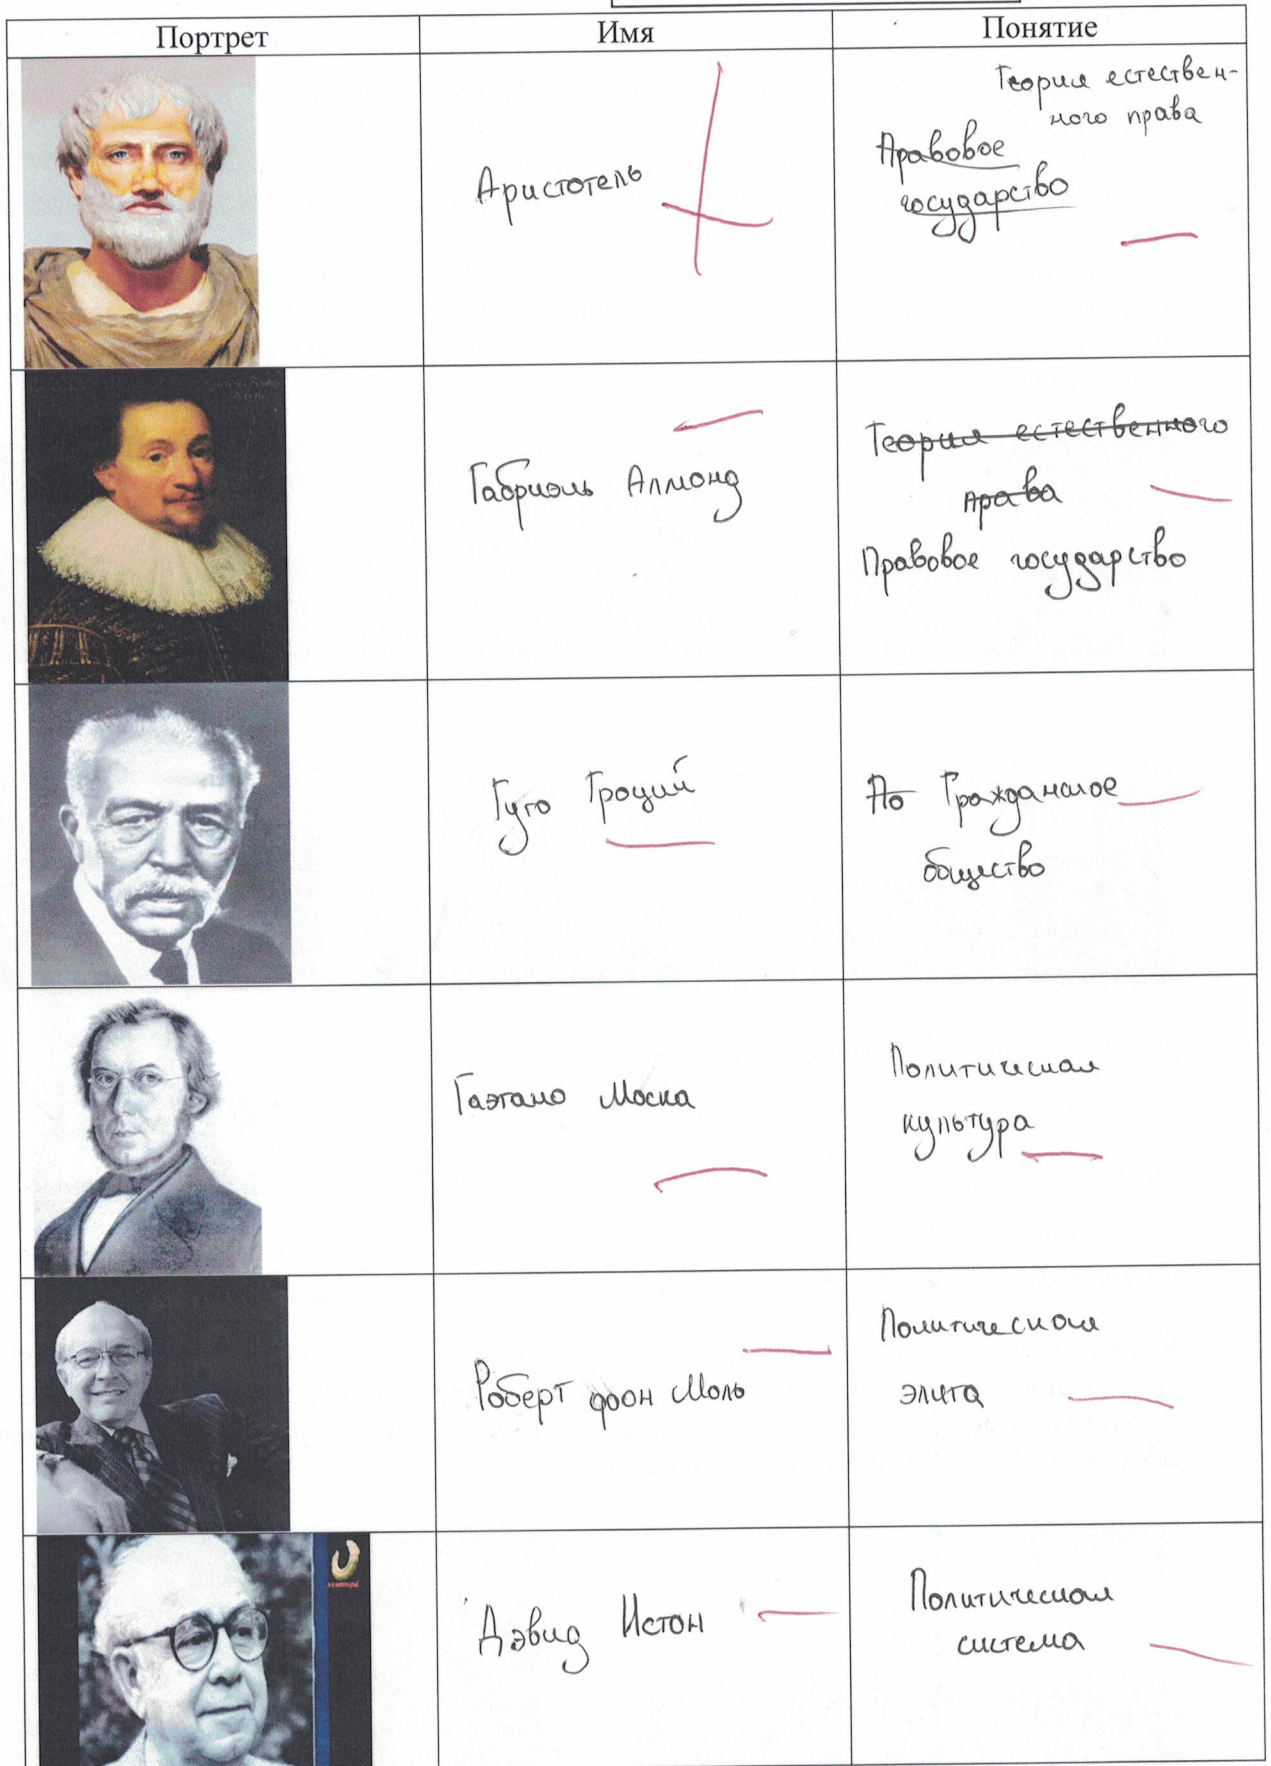 Портрет Имя Понятие
Теория естествен-
ного права
Аристотель
Правовое
государство
Габриэль Алмонд
Теория естественного
права
Правовое государство
Гуго Гроций
По Гражданское
общество
Гаэтано Моска
Политическая
культура
Роберт фон Моль
Политическая
элита
Дэвид Истон
Политическая
система